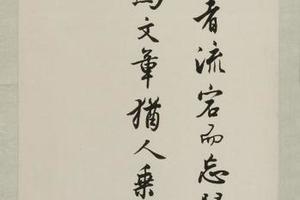 者流宕而忘
文章犹人乘